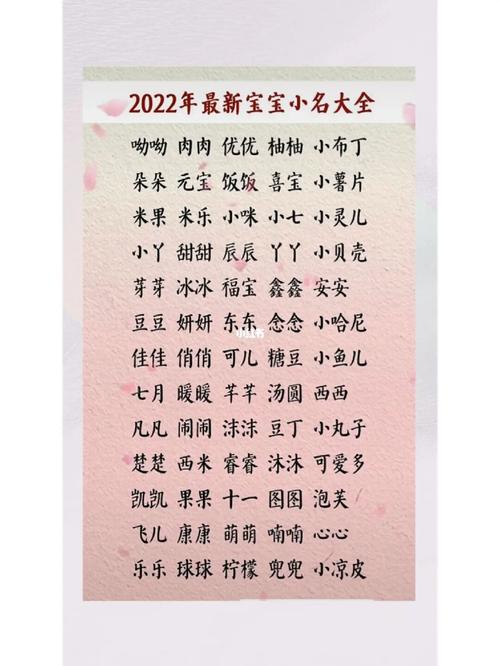 2022年最新宝宝小名大全
呦呦 肉肉 优优 柚柚 小布丁
朵朵 元宝 饭饭 喜宝 小薯片
米果 米乐 小咪 小七 小灵儿
小丫 甜甜 辰辰 丫丫 小贝壳
芽芽 冰冰 福宝 鑫鑫 安安
豆豆 妍妍 东东 念念 小哈尼
小红书
佳佳 俏俏 可儿 糖豆 小鱼儿
七月 暖暖 芊芊 汤圆 西西
凡凡 闹闹 沫沫 豆丁 小丸子
楚楚 西米 睿睿 沐沐 可爱多
凯凯 果果 十一 图图 泡芙
飞儿 康康 萌萌 喃喃 心心
乐乐 球球 柠檬 兜兜 小凉皮